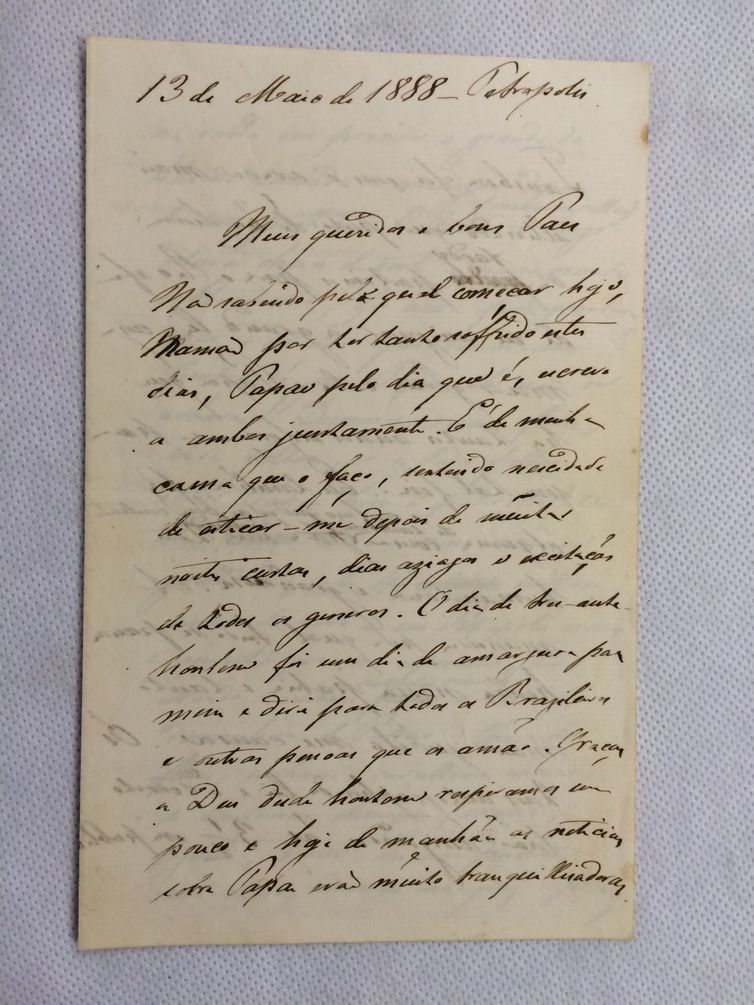 13 de Maio de 1888 — Petropolis
Meus queridos e bons Paes
Não sabendo por qual começar hoje,
Mamãe por ter tanto soffrido estes
dias, Papae pelo dia que é, escrevo
a ambos juntamente. É de minha
cama que o faço, sentindo necessidade
de esticar-me depois de muitas
noites curtas, dias aziagos e excitações
de todos os generos. O dia de tres-ante-
hontem foi um dia de amargura para
mim e direi para todos os Brazileiros
e outras pessoas que os amão. Graças
a Deus desde hontem respiramos um
pouco e hoje de manhã as noticias
sobre Papae erão muito tranquillisadoras.